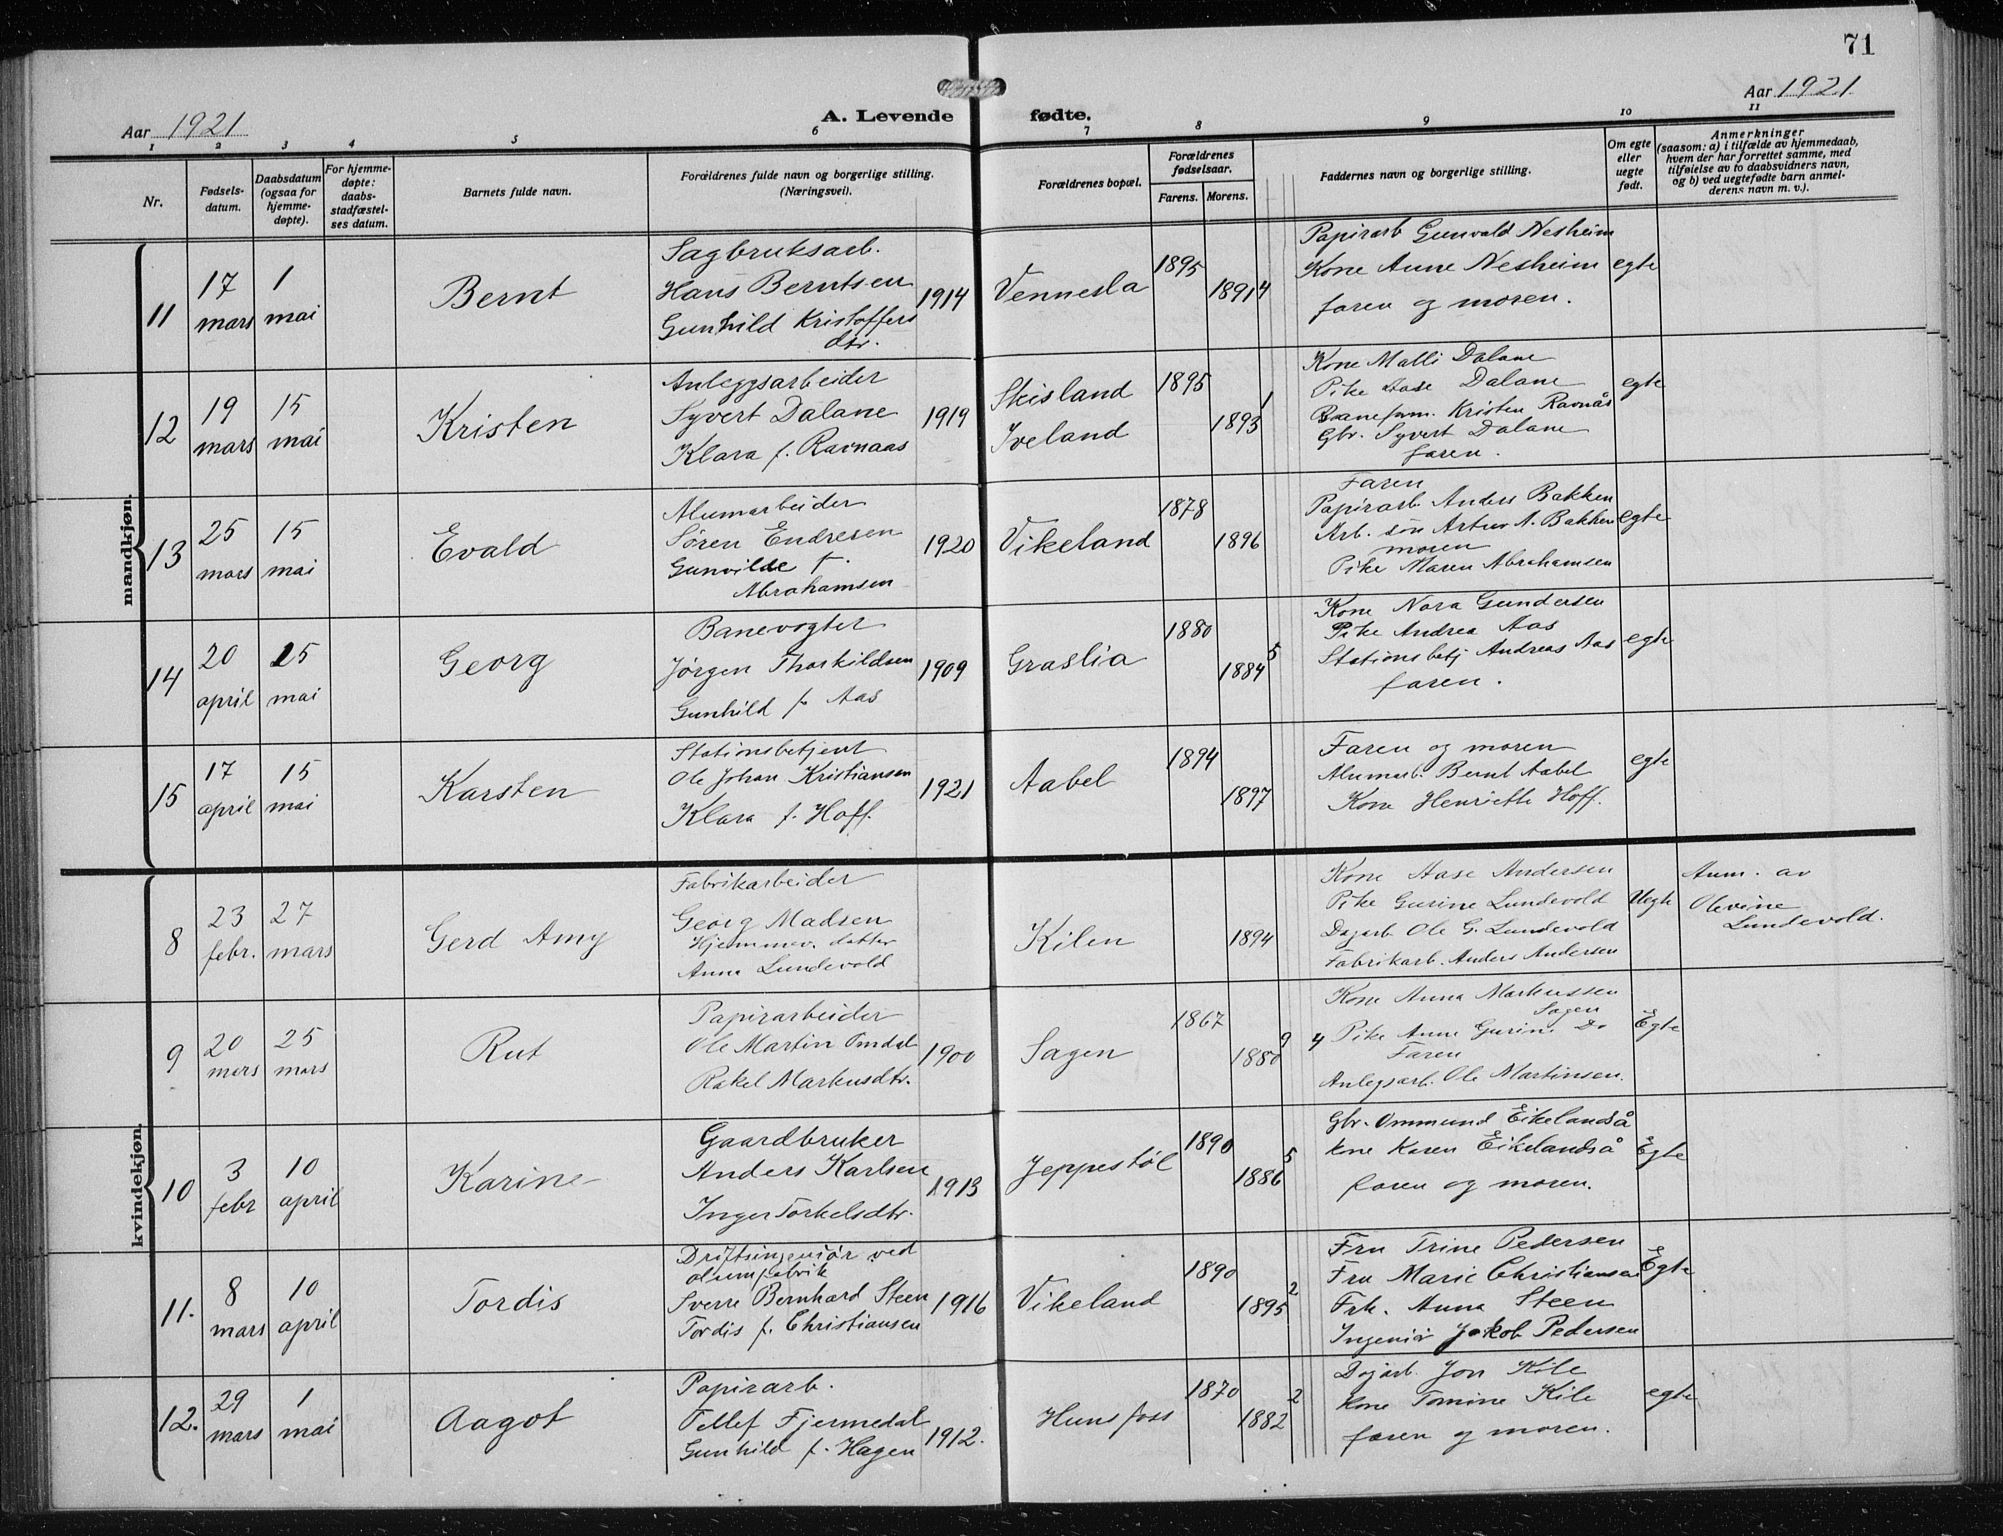 71
Aar 1921
A. Levende fødte.
Aar 1921.
1 2 3 4 5 6 7 8 9 10 11
Nr.
Fødsels-
datum.
Daabsdatum
(ogsaa for
hjemme-
døpte).
For hjemme-
døpte:
daabs-
stadfæstel-
ses datum.
Barnets fulde navn.
Forældrenes fulde navn og borgerlige stilling.
(Næringsvei).
Forældrenes bopæl.
Forældrenes
fødselsaar.
Farens. Morens.
Faddernes navn og borgerlige stilling.
Om egte
eller
uegte
født.
Anmerkninger
(saasom: a) i tilfælde av hjemmedaab,
hvem der har forrettet samme, med
tilføielse av to daabsvidners navn,
og b) ved uegtefødte barn anmel-
derens navn m. v.).
mandkjøn.
11
17
mars
1
mai
Bernt
Sagbruksarb.
Hans Berntsen
Gunhild Kristoffers
dtr.
1914
Vennesla
1895
1891 4
Papirarb Gunvald Nesheim
Kone Anne Nesheim
faren og moren.
egte
12
19
mars
15
mai
Kristen
Anleggsarbeider
Syvert Dalane
Klara f. Ravnaas
1919
Skisland
Iveland
1895
1893 1
Kone Malli Dalane
Pike Aase Dalane
Baneform. Kristen Ravnås
Gbr. Syvert Dalane
faren.
egte
13
25
mars
15
mai
Evald
Alumarbeider
Søren Endresen
Gunvilde f.
Abrahamsen
1920
Vikeland
1878
1896
Faren
Papirarb Anders Bakken
Arb. søn Artur A. Bakken
moren
Pike Maren Abrahamsen
egte
14
20
april
15
mai
Georg
Banevogter
Jørgen Thorkildsen
Gunhild f. Aas
1909
Graslia
1880
1884 5
Kone Nora Gundersen
Pike Andrea Aas
Stationsbetj Andreas Aas
faren.
egte
15
17
april
15
mai
Karsten
Stationsbetjent
Ole Johan Kristiansen
Klara f. Hoff.
1921
Aabel
1894
1897
Faren og moren
Alumarb. Bernt Aabel
Kone Henriette Hoff.
egte
kvindekjøn.
8
23
febr.
27
mars
Gerd Amy
Fabrikarbeider
Georg Madsen
Hjemmev. datter
Anna Lundevold
Kilen
1894
Kone Aase Andersen
Pike Gurine Lundevold
Dagarb Ole G. Lundevold
Fabrikarb. Anders Andersen
Uegte
Anm. av
Olevine
Lundevold.
9
20
mars
25
mars
Rut
Papirarbeider
Ole Martin Omdal
Rakel Markusdtr.
1900
Sagen
1867
1880 9 4
Kone Anna Markussen
Sagen
Pike Anne Gurine Do
Faren
Anlegsarb. Ole Martinsen.
Egte
10
3
febr
10
april
Karine
Gaardbruker
Anders Karlsen
Inger Torkelsdtr.
1913
Jeppestøl
1890
1886 5
Gbr. Ommund Eikelandså
kone Karen Eikelandså
faren og moren.
Egte
11.
8
mars
10
april
Tordis
Driftsingeniør ved
alumfabrik
Sverre Bernhard Steen
Tordis f. Christiansen
1916
Vikeland
1890
1895 2
Fru Trine Pedersen
Fru Marie Christiansen
Frk. Anna Steen
Ingeniør Jakob Pedersen
Egte
12.
29
mars
1
mai
Aagot
Papirarb.
Tellef Fjermedal
Gunhild f. Hagen
1912.
Hunsfoss
1870
1882 2
Dagarb. Jon Kile
kone Tomine Kile
faren og moren.
egte